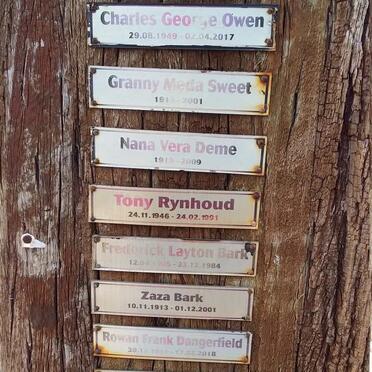 Charles George Owen
29.08.1949 - 02.04.2017
Granny Meda Sweet
2001
Nana Vera Deme
2009
Tony Rynhoud
24.11.1946 - 24.02.1991
Frederick Layton Bark
1984
Zaza Bark
10.11.1913 - 01.12.2001
Rowan Frank Dangerfield
2018